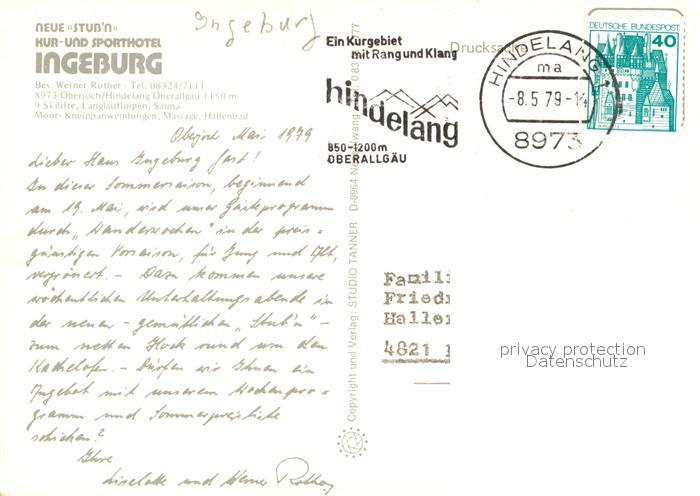 NEUE »STUB'N«
KUR- UND SPORTHOTEL
INGEBURG
Bes. Werner Rother - Tel. 08324/7111
8973 Oberjoch/Hindelang Oberallgäu 1150 m
9 Skilifte, Langlaufloipen, Sauna
Moor- Kneippanwendungen, Massage, Hallenbad
Ingeburg
Oberjoch Mai 1979
Lieber Haus Ingeburg Gast!
In dieser Sommersaison, beginnend
am 19. Mai, wird unser Gästeprogramm
durch „Wanderwochen" in der preis=
günstigen Vorsaison, für Jung und Alt,
vergrössert. - Dazu kommen unsere
wöchentlichen Unterhaltungsabende in
der neuen - gemütlichen „Stub'n" -
zum netten Hock rund um den
Kachelofen. - Dürfen wir Ihnen ein
Angebot mit unserem Wochenpro=
gramm und Sommerpreisliste
schicken?
Ihre
Liselotte und Werner Rother
Copyright und Verlag: STUDIO TANNER D-8964
Ein Kurgebiet
mit Rang und Klang
hindelang
850-1200m
OBERALLGÄU
Drucksache
HINDELANG 1
ma
-8.5.79-14
8973
DEUTSCHE BUNDESPOST
40
Famili
Friedr
Haller
4821
privacy protection
Datenschutz